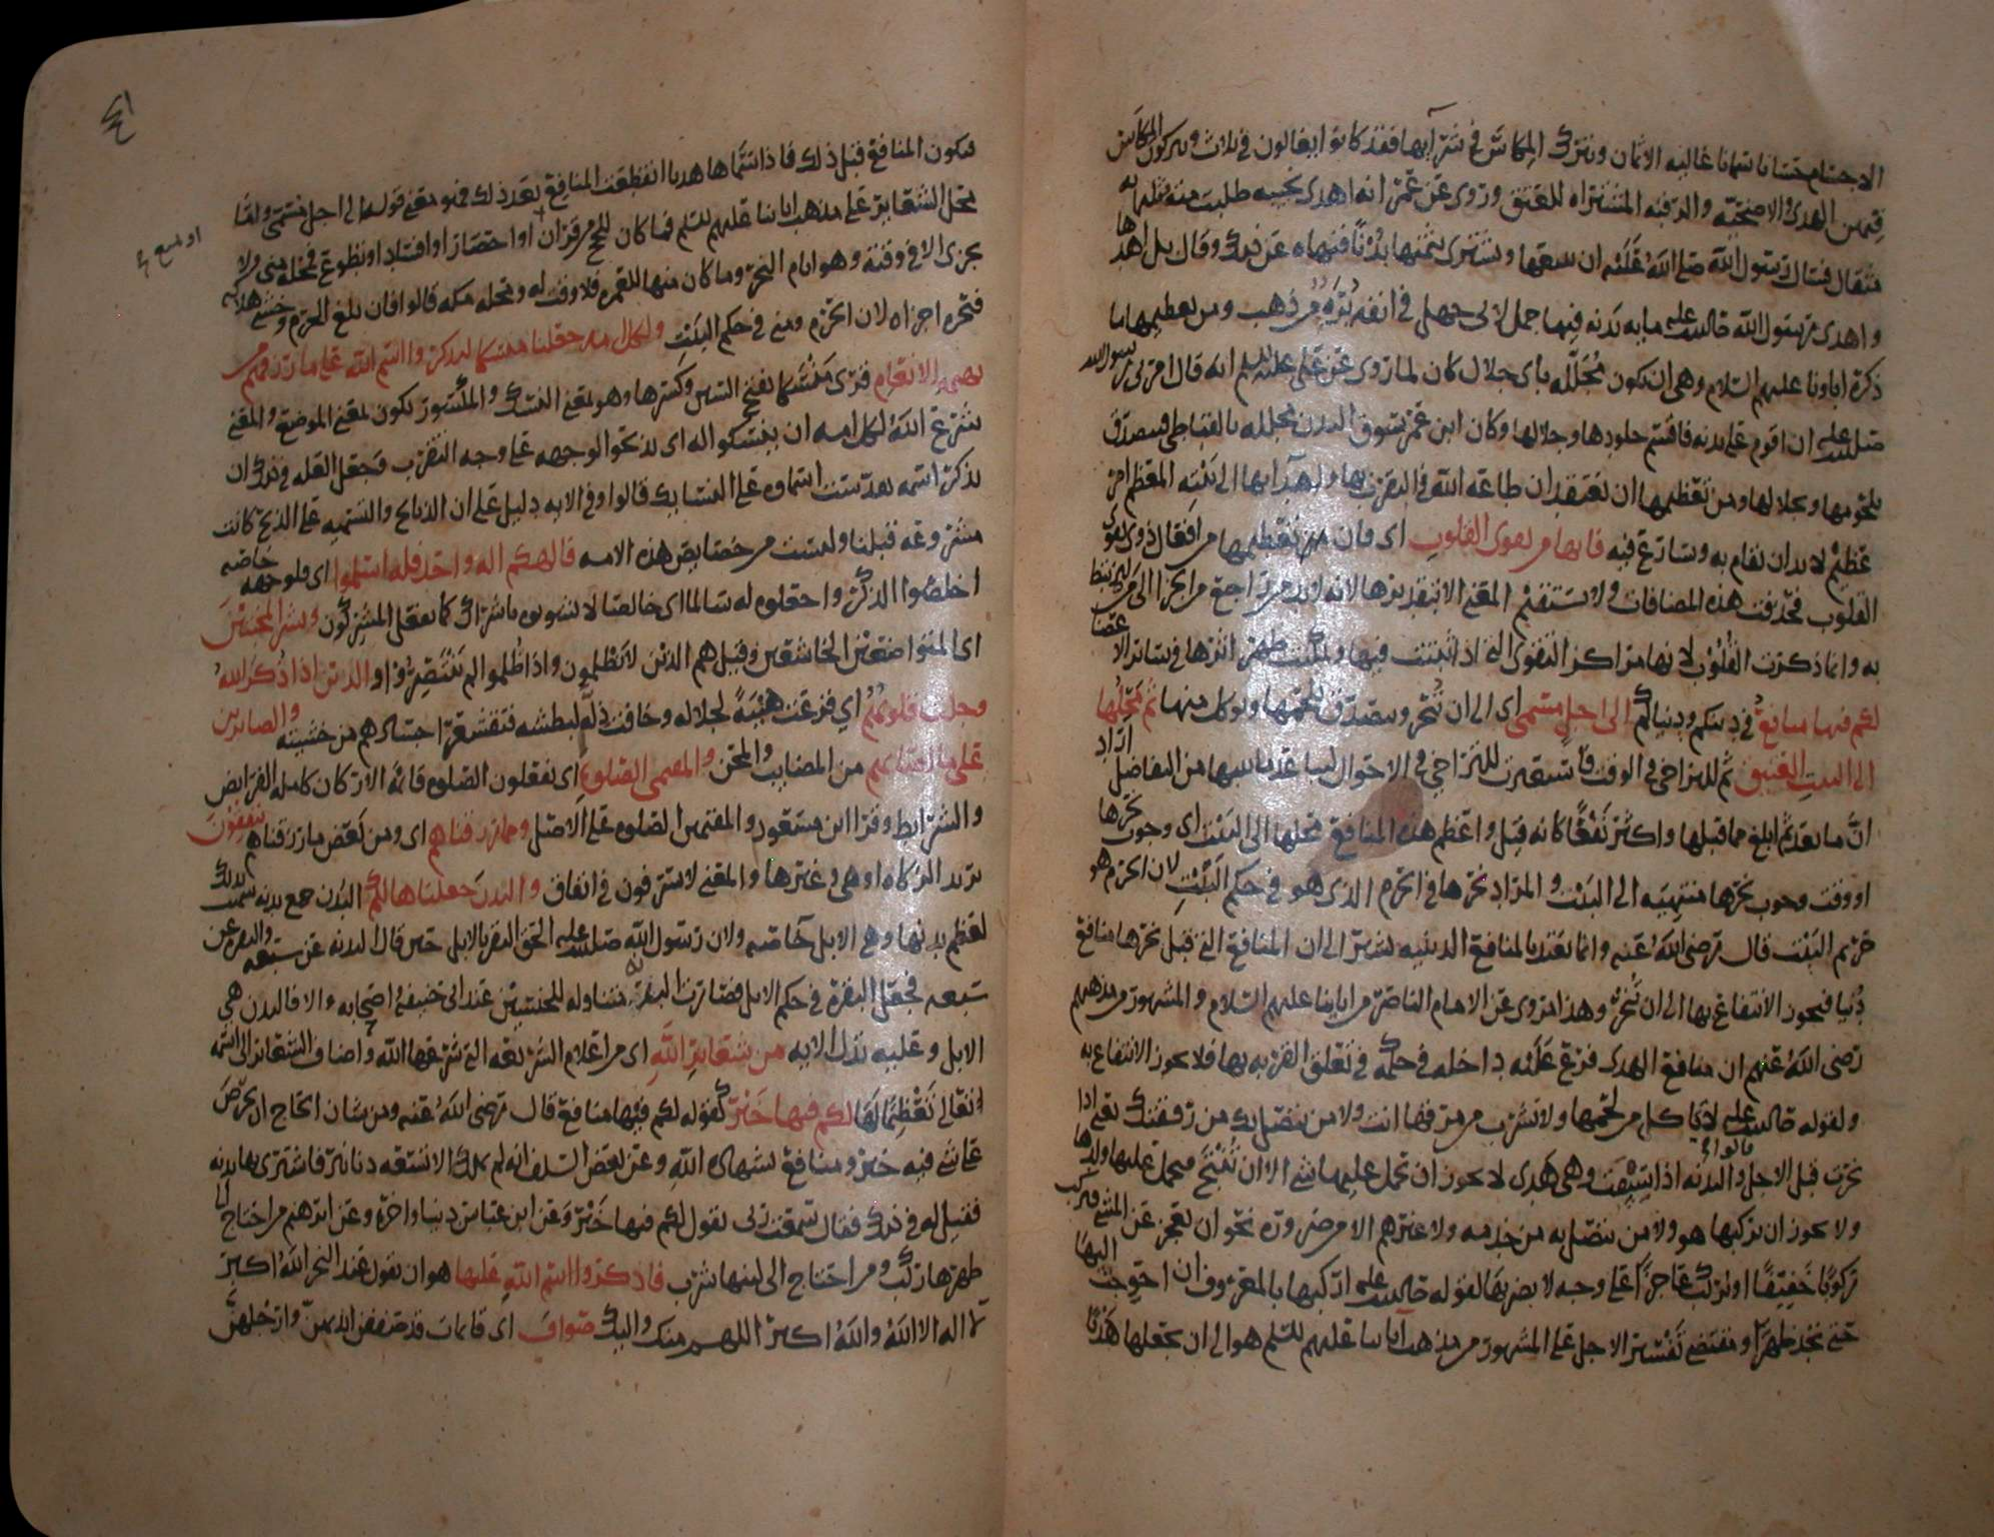 الاجسام حسانا سمانا غاليه الاثمان ويترك المكاس في شرآيها فقد كانوا يغالون في ثلاث ويكرهون المكاس
فيهن الهدى والاضحيّه والرقبه المشتراه للعتق وروى عن عمر انه اهدى نجيبه طلبت منه بثلثمايه
مثقال فسال رسول الله صلى الله عليه ان يبيعها ويشترى بثمنها بُدْنًا فنهاه عن ذلك وقال بل اهدها
واهدى رسول الله صلى الله عليه مايه بدنه فيها جمل لابى جهل في انفه بُرَه من ذهب ومن تعظيمها ما
ذكره اباونا عليهم السلام وهى ان تكون مُجَلّله باى جلال كان لما روى عن على عليه السلم انه قال امرنى رسول الله
صلى الله عليه ان اقوم على بدنه فاقسم جلودها وجلالها وكان ابن عمر يسوق البدن مجلله بالقباطى فيتصدق
بلحومها وبجلالها ومن تعظيمها ان يعتقد ان طاعه الله في التقرب بها واهدآيها الى بيته المعظم امر
عظيم لا بد ان يقام به ويسارع فيه فانها من تقوى القلوب اى فان تعظيمها من افعال ذوى تقوى
القلوب فحذفت هذه المضافات ولا يستقيم المعنى الا بتقديرها لانه لا بد من راجع من الجزا الى من ليرتبط
به وانما ذكرت القلوب لانها مراكز التقوى التى اذا ثبتت فيها وتمكنت ظهر اثرها في سائر الاعضا
لكم فيها منافع في دينكم ودنياكم الى اجل مسمى اى الى ان تُنحر ويتصدق بلحمها ويوكل منها ثم محلها
الى البيت العتيق ثم للتراخى في الوقت فاستعيرت للتراخى في الاحوال لما بينها من التفاضل اراد
انّ ما بعد ثم ابلغ مما قبلها واكثر نَفْعًا كانه قيل واعظم هذه المنافع محلها الى البيت اى وجوب نحرها
او وقت وجوب نحرها منتهيه الى البيت والمراد نحرها في الحرم الذى هو في حكم البيت لان الحرم هو
حريم البيت قال رضى الله عنه وانما بالمنافع الدينيه يشير الى ان المنافع التى قبل نحرها منافع
دُنيا فيجوز الانتفاع بها الى ان تُنحر وهذا مروى عن الامام الناصر من ابائنا عليهم السلام والمشهور من مذهبهم
رضى الله عنهم ان منافع الهدى فرع عليه داخله في حكمه في تعلق القربه بها فلا يجوز الانتفاع به
ولقوله صلى الله عليه لا تاكل من لحمها ولا تشرب من مرقها انت ولا من يتصل بك من رفقتك يعنى اذا
نحرت قبل الاجل قالوا والبدنه اذا سِيْقَت وهى هَدى لا يجوز ان يحمل عليها شى الا ان تُنْتَجَ فيحمل عليها ولدها
ولا يجوز ان يركبها هو ولا من يتصل به من خدمه ولا غيرهم الا من ضروره نحو ان يعجز عن المشى فيركب
رُكوبًا خفيفًا او يُركب عاجزًا على وجه لا يضر بها لقوله صلى الله عليه اركبها بالمعروف ان احوجت اليها
حتى تجد ظهرًا ومقتضى تفسير الاجل على المشهور من مذهب آبائنا عليهم السلم هو الى ان يجعلها هَدْيًا
فيكون المنافع قبل ذلك فاذا سمّاها هديا انقطعت المنافع بعد ذلك فهو معنى قوله الى اجل مسمى واما
محل الشعاير على مذهب ابائنا عليهم السلم فما كان للحج من قران او احصار او افساد او تطوع فمحله منى ولا
او تمتع
يجزى الا في وقته وهو ايام النحر وما كان منها للعمره فلا وقت له ومحله مكه قالوا فان بلغ الحرم وخشى هلاكه
فنحره اجزاه لان الحرم ومنى في حكم البيت ولكل امه جعلنا منسكا ليذكروا اسم الله على ما رزقهم من
بهيمه الانعام قرى منسكا بفتح السين وكسرها وهو بمعنى النسك والمكسور يكون بمعنى الموضع والمعنى
شرع الله لكل امه ان ينسكوا له اى يذبحوا لوجهه على وجه التقرب وجعل العله في ذلك ان
يذكر اسمه تقدست اسماوه على النسايك قالوا وفي الايه دليل على ان الذبايح والتسميه على الذبح كانت
مشروعه قبلنا وليست من خصايص هذه الامه فالهكم اله واحد فله اسلموا اى فلوجهه خاصه
اخلصوا الذكر واجعلوه له سالما اى خالصا لا تشوبوه باشراك كما يفعل المشركون وبشر المخبتين
اى المتواضعين الخاشعين وقيل هم الذين لا يَظْلِمون واذا ظُلِموا لم يَنْتَصِرُوا والذين اذا ذُكر الله
وجلت قلوبهم اي فزعت هَيْبَةً لجلاله وخافت لبطشه فتقشعر اجسادهم من خشيته والصابرين
على ما اصابهم من المصايب والمحن والمقيمى الصلوه اى يفعلون الصلوه قائمه الاركان كامله الفرايض
والشرايط وقرا ابن مسعود والمقيمين الصلوه على الاصل ومما رزقناهم اى ومن بعض ما رزقناهم ينفقون
يريد الزكاه او هى وغيرها والمعنى لا يسرفون في انفاق والبدن جعلناها لكم البُدن جمع بدنه سميت بذلك
لعظم بدنها وهى الابل خاصه ولان رسول الله صلى الله عليه الحق البقر بالابل حين قال البدنه عن سبعه والبقره عن
سبعه فجعل البقره في حكم الابل فصارت البدنه متناوله للجنسين عند ابى حنيفه واصحابه والا فالبدن هى
الابل وعليه تدل الايه من شعاير الله اى من اعلام الشريعه التى شرعها الله واضاف الشعاير الى اسمه
تعالى تَعْظِيمًا لَهَا لكم فيها خير كقوله لكم فيها منافع قال رضى الله عنه ومن شان الحاج ان يحرص
على شى فيه خير ومنافع بشهاده الله وعن بعض السلف انه لم يملك الا تسعه دنانير فاشترى بها بدنه
فقيل له في ذلك فقال سمعت ربى يقول لكم فيها خير وعن ابن عباس دنيا واخره وعن ابرهيم من احتاج الى
ظهرها ركب ومن احتاج الى لبنها شرب فاذكروا اسم الله عليها هو ان يقول عند النحر الله اكبر
لا اله الا الله والله اكبر اللهم منك واليك صواف اى قايمات قد صففن ايديهن وارجلهن